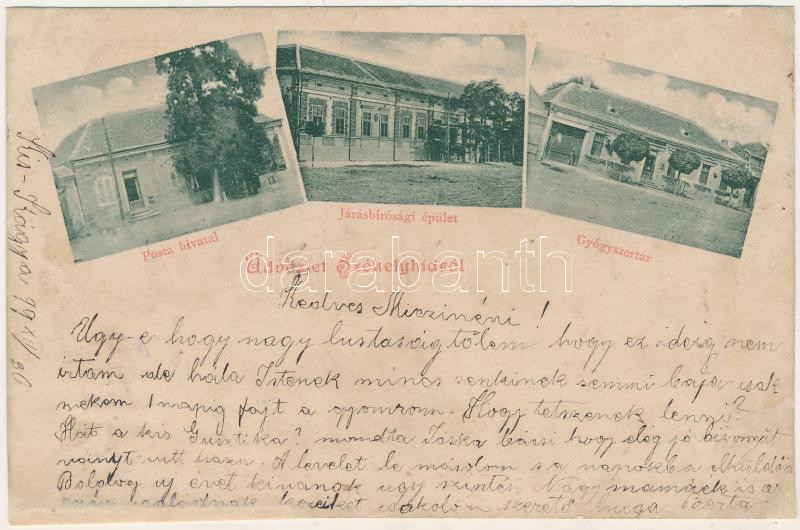 Posta hivatal
Járásbirósági épület
Gyógyszertár
Üdvözlet Székelyhidról
darabanth
Kis-Kágya 99 XII/30
Kedves Miczinéni!
Ugy-e hogy nagy lustaság tőlem hogy ez ideig nem
irtam de hála Istenek nincs senkinek semmi baja csak
nekem 1 napig fajt a gyomrom. Hogy tetszenek lenni?
Hát a kis Gusztika? mondta Jóska bácsi hogy elég jó bizonyit
ványt vitt haza. A levelet le másolom s a napokba elküldöm
Boldog uj évet kivánok ugy szintén Nagymamáék is az
kezeiket csókolom szerető huga Berta